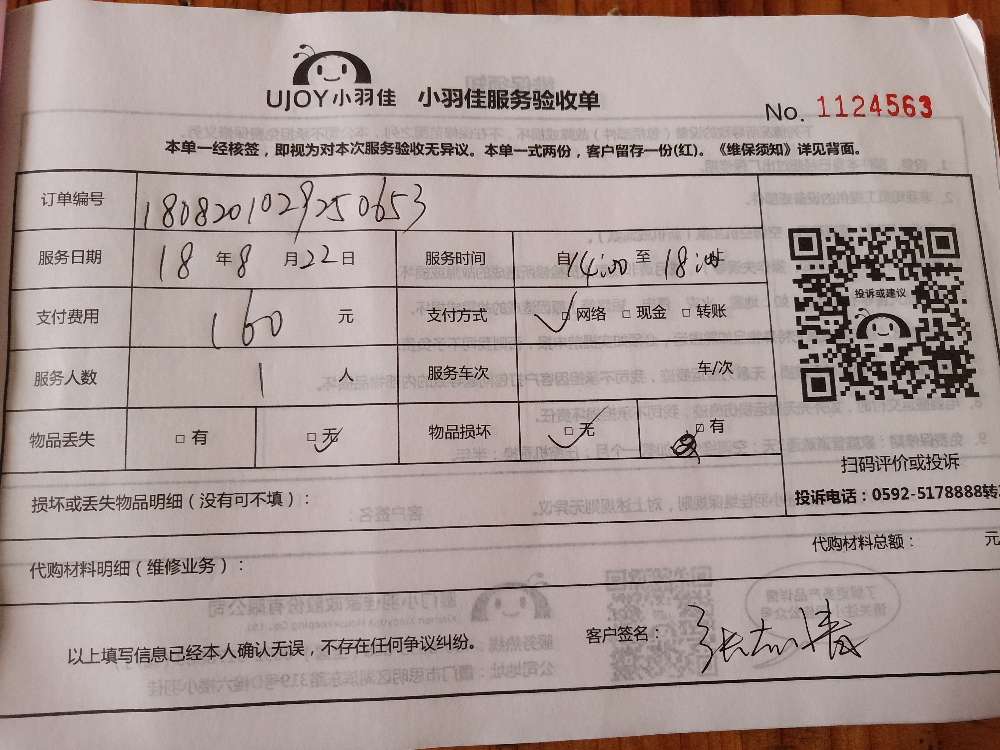 UJOY小羽佳 小羽佳服务验收单
No. 1124563
本单一经核签，即视为对本次服务验收无异议。本单一式两份，客户留存一份(红)。《维保须知》详见背面。
订单编号 1808201029250653
服务日期 18 年 8 月 22 日 服务时间 自 14:00 至 18:00
支付费用 160 元 支付方式 □ 网络 □ 现金 □ 转账
服务人数 1 人 服务车次 车/次
物品丢失 □ 有 □ 无 物品损坏 □ 无 □ 有
投诉或建议
扫码评价或投诉
投诉电话：0592-5178888转
损坏或丢失物品明细（没有可不填）：
代购材料明细（维修业务）：
代购材料总额： 元
以上填写信息已经本人确认无误，不存在任何争议纠纷。
客户签名：